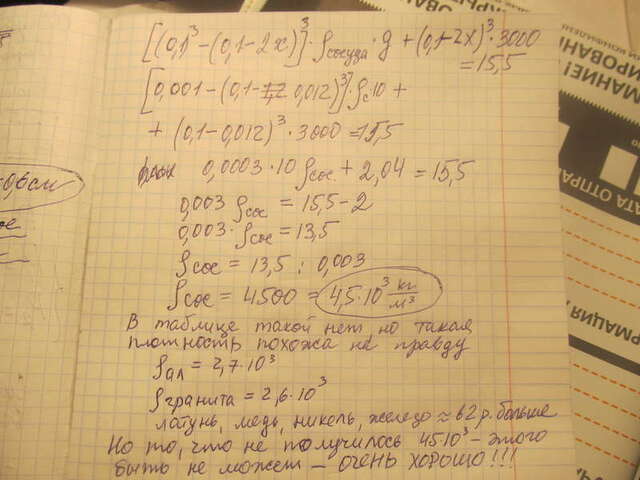 [(0,1)³-(0,1-2x)]³·ρсосуда·g+(0,1-2x)³·3000
=15,5
[0,001-(0,1- 0,012)³]·ρс·10+
+(0,1-0,012)³·3000=15,5
0,0003·10ρсос+2,04=15,5
0,003ρсос=15,5-2
0,003·ρсос=13,5
ρсос=13,5:0,003
ρсос=4500=4,5·10³ кг/м³
В таблице такой нет, но такая
плотность похожа на правду
ρал=2,7·10³
ρгранита=2,6·10³
латунь, медь, никель, железо ≈ в 2 р. больше
Но то, что не получилось 45·10³ - этого
быть не может - ОЧЕНЬ ХОРОШО!!!
0,6см